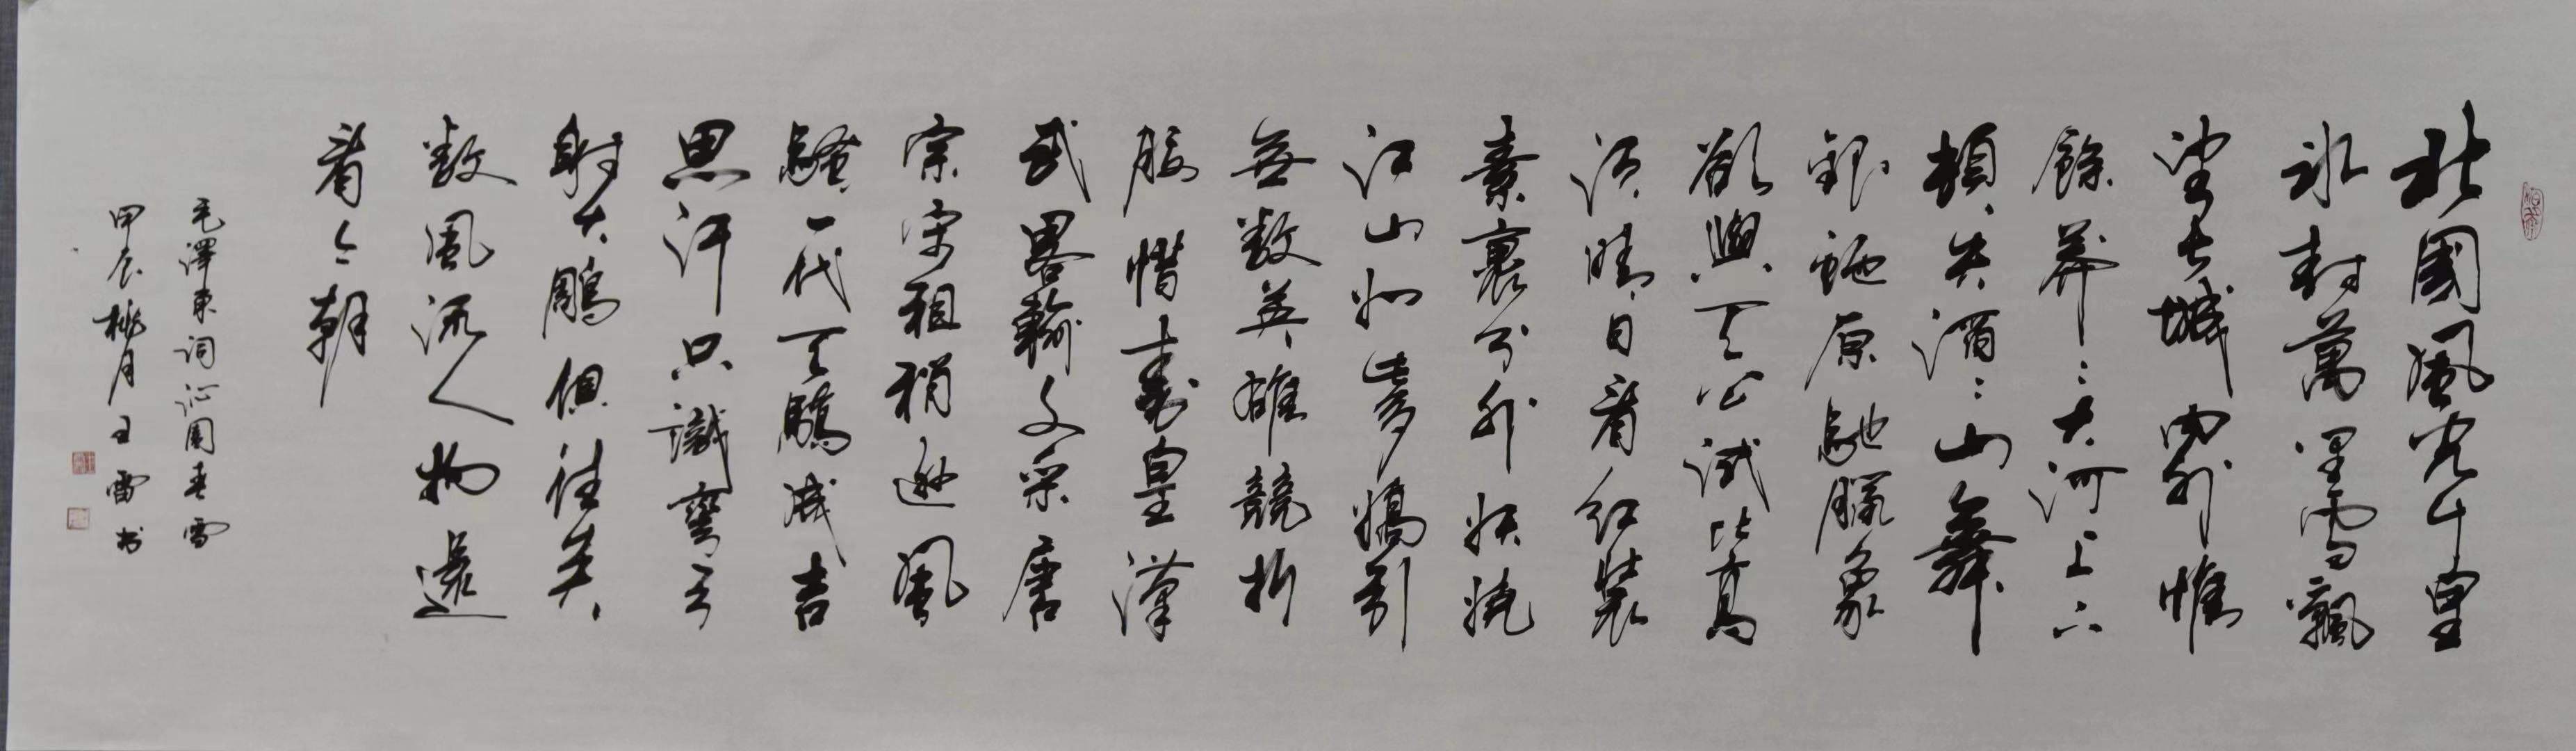 北國風光千里
冰封萬里雪飄
望長城內外惟
餘莽：大河上下
頓失滔：山舞
銀蛇原馳臘象
欲與天公試比高
須晴日看紅裝
素裹分外妖嬈
江山如此多嬌引
無数英雄競折
腰惜秦皇漢
武畧輸文采唐
宗宋祖稍遜風
騷一代天驕成吉
思汗只識彎弓
射大鵰俱往矣
数風流人物還
看今朝
毛澤東词沁園春雪
甲辰桃月王雷书